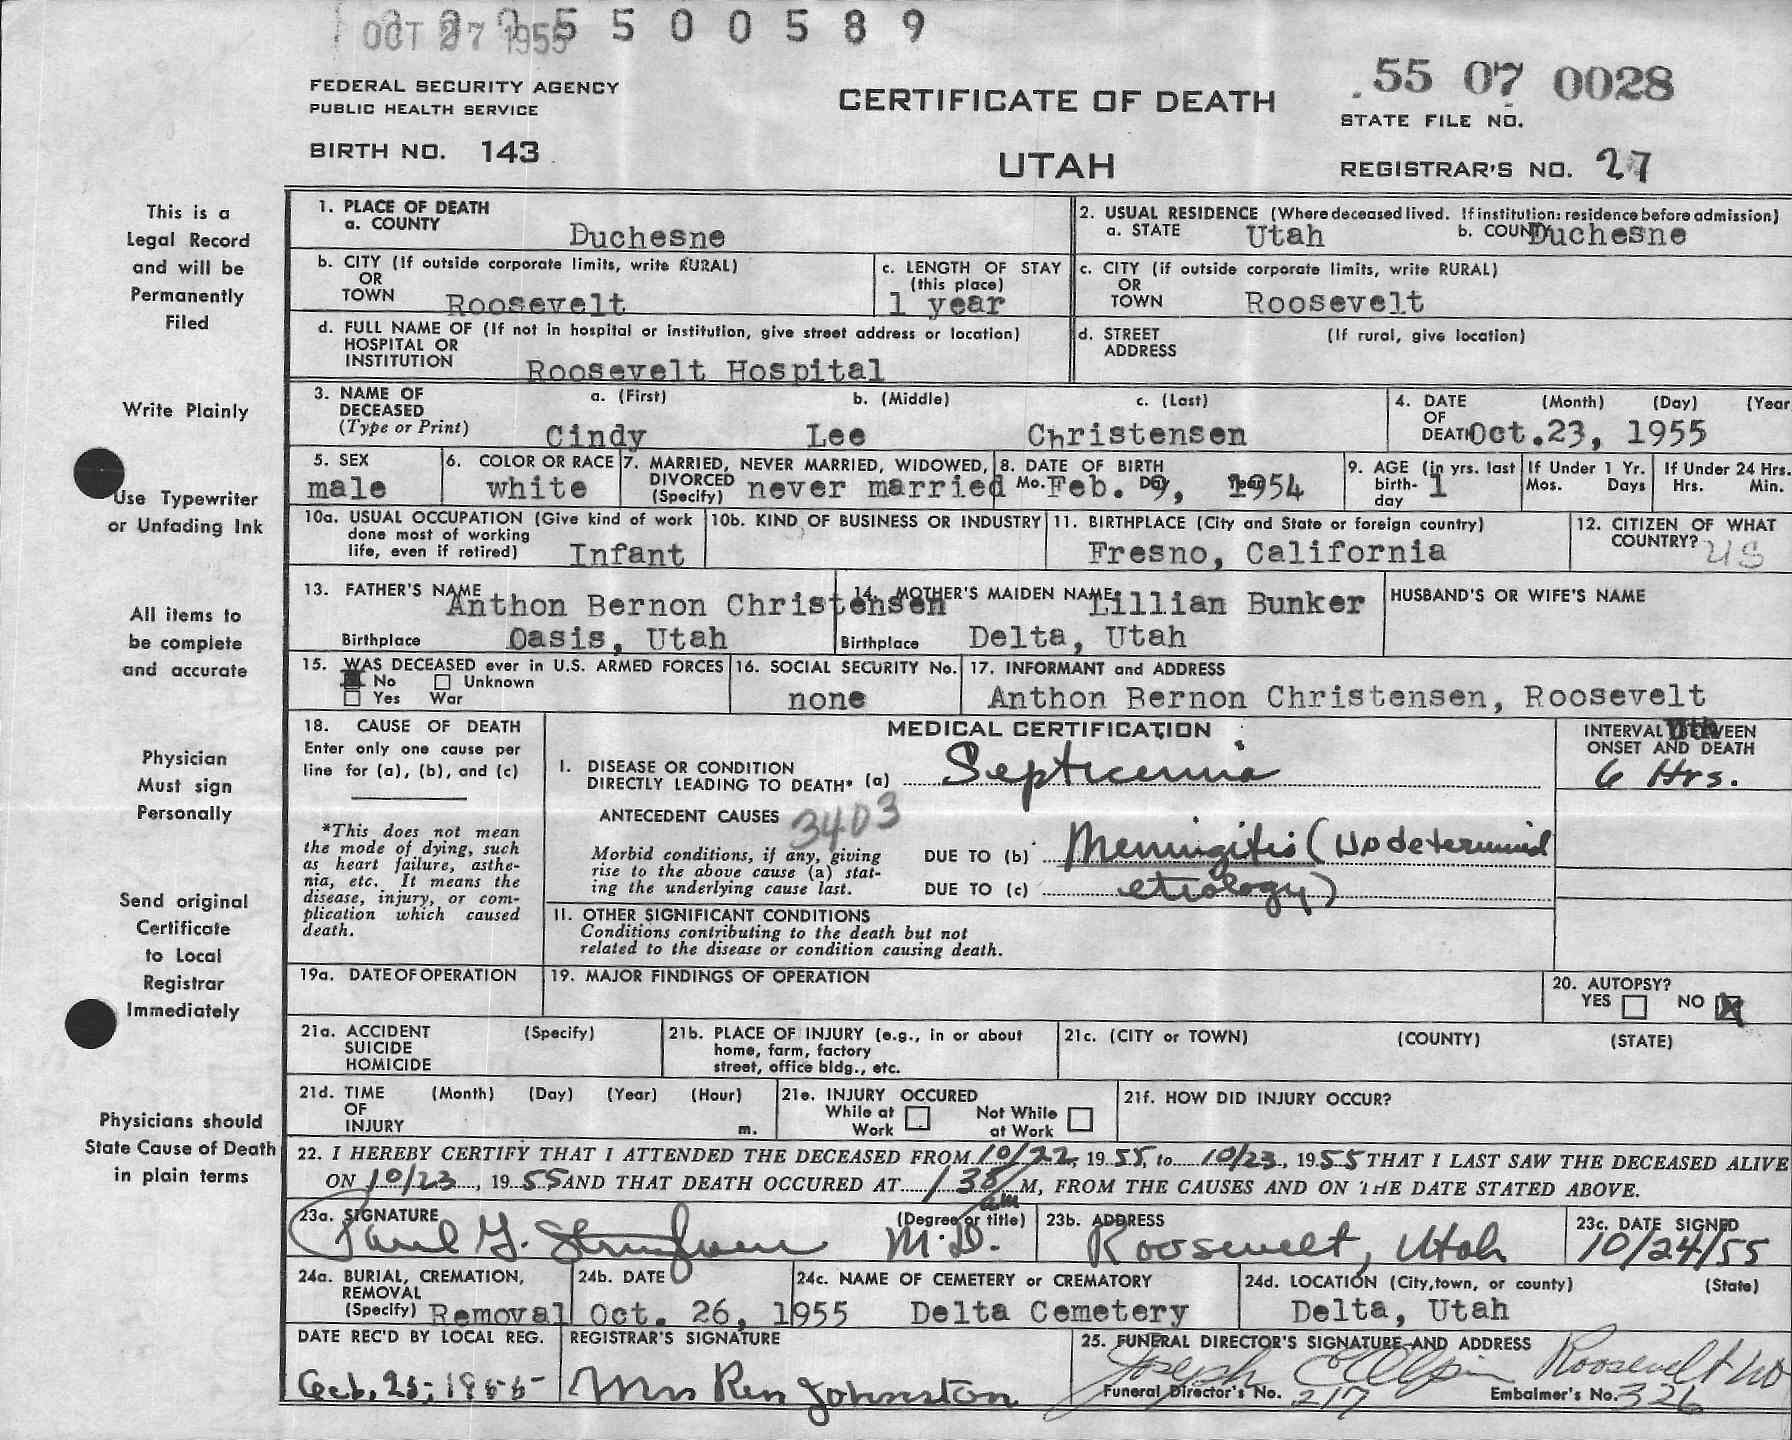 OCT 27 1955 5 5 0 0 5 8 9
FEDERAL SECURITY AGENCY
PUBLIC HEALTH SERVICE
BIRTH NO. 143
CERTIFICATE OF DEATH
UTAH
55 07 0028
STATE FILE NO.
REGISTRAR'S NO. 27
This is a
Legal Record
and will be
Permanently
Filed
Write Plainly
Use Typewriter
or Unfading Ink
All items to
be complete
and accurate
Physician
Must sign
Personally
Send original
Certificate
to Local
Registrar
Immediately
Physicians should
State Cause of Death
in plain terms
1. PLACE OF DEATH
a. COUNTY Duchesne
2. USUAL RESIDENCE (Where deceased lived. If institution: residence before admission)
a. STATE Utah b. COUNTY Duchesne
b. CITY (If outside corporate limits, write RURAL)
OR
TOWN Roosevelt
c. LENGTH OF STAY
(this place)
1 year
c. CITY (if outside corporate limits, write RURAL)
OR
TOWN Roosevelt
d. FULL NAME OF (If not in hospital or institution, give street address or location)
HOSPITAL OR
INSTITUTION Roosevelt Hospital
d. STREET (If rural, give location)
ADDRESS
3. NAME OF a. (First) b. (Middle) c. (Last)
DECEASED
(Type or Print) Cindy Lee Christensen
4. DATE (Month) (Day) (Year
OF
DEATH Oct.23, 1955
5. SEX
male
6. COLOR OR RACE
white
7. MARRIED, NEVER MARRIED, WIDOWED,
DIVORCED
(Specify) never married
8. DATE OF BIRTH
Mo. Feb. Day 9, Year 1954
9. AGE (in yrs. last
birth-
day 1
If Under 1 Yr.
Mos. Days
If Under 24 Hrs.
Hrs. Min.
10a. USUAL OCCUPATION (Give kind of work
done most of working
life, even if retired) Infant
10b. KIND OF BUSINESS OR INDUSTRY
11. BIRTHPLACE (City and State or foreign country)
Fresno, California
12. CITIZEN OF WHAT
COUNTRY? US
13. FATHER'S NAME Anthon Bernon Christensen
Birthplace Oasis, Utah
14. MOTHER'S MAIDEN NAME Lillian Bunker
Birthplace Delta, Utah
HUSBAND'S OR WIFE'S NAME
15. WAS DECEASED ever in U.S. ARMED FORCES
No Unknown
Yes War
16. SOCIAL SECURITY No.
none
17. INFORMANT and ADDRESS
Anthon Bernon Christensen, Roosevelt
Utah
18. CAUSE OF DEATH
Enter only one cause per
line for (a), (b), and (c)
*This does not mean
the mode of dying, such
as heart failure, asthe-
nia, etc. It means the
disease, injury, or com-
plication which caused
death.
MEDICAL CERTIFICATION
INTERVAL BETWEEN
ONSET AND DEATH
6 Hrs.
I. DISEASE OR CONDITION
DIRECTLY LEADING TO DEATH* (a) Septicemia
ANTECEDENT CAUSES 3403
Morbid conditions, if any, giving
rise to the above cause (a) stat-
ing the underlying cause last.
DUE TO (b) Meningitis (Undetermined
DUE TO (c) etiology)
II. OTHER SIGNIFICANT CONDITIONS
Conditions contributing to the death but not
related to the disease or condition causing death.
19a. DATE OF OPERATION
19. MAJOR FINDINGS OF OPERATION
20. AUTOPSY?
YES NO X
21a. ACCIDENT (Specify)
SUICIDE
HOMICIDE
21b. PLACE OF INJURY (e.g., in or about
home, farm, factory
street, office bldg., etc.
21c. (CITY or TOWN) (COUNTY) (STATE)
21d. TIME (Month) (Day) (Year) (Hour)
OF
INJURY m.
21e. INJURY OCCURED
While at Work Not While at Work
21f. HOW DID INJURY OCCUR?
22. I HEREBY CERTIFY THAT I ATTENDED THE DECEASED FROM 10/22, 1955, to 10/23, 1955 THAT I LAST SAW THE DECEASED ALIVE
ON 10/23, 1955 AND THAT DEATH OCCURED AT 1 35 am M, FROM THE CAUSES AND ON THE DATE STATED ABOVE.
23a. SIGNATURE (Degree or title)
Paul G. Stringham M.D.
23b. ADDRESS
Roosevelt, Utah
23c. DATE SIGNED
10/24/55
24a. BURIAL, CREMATION,
REMOVAL
(Specify) Removal
24b. DATE
Oct. 26, 1955
24c. NAME OF CEMETERY or CREMATORY
Delta Cemetery
24d. LOCATION (City, town, or county) (State)
Delta, Utah
DATE REC'D BY LOCAL REG.
Oct. 25, 1955
REGISTRAR'S SIGNATURE
Mrs Ren Johnston
25. FUNERAL DIRECTOR'S SIGNATURE AND ADDRESS
Joseph Roosevelt
Funeral Director's No. 217 Embalmer's No. 326